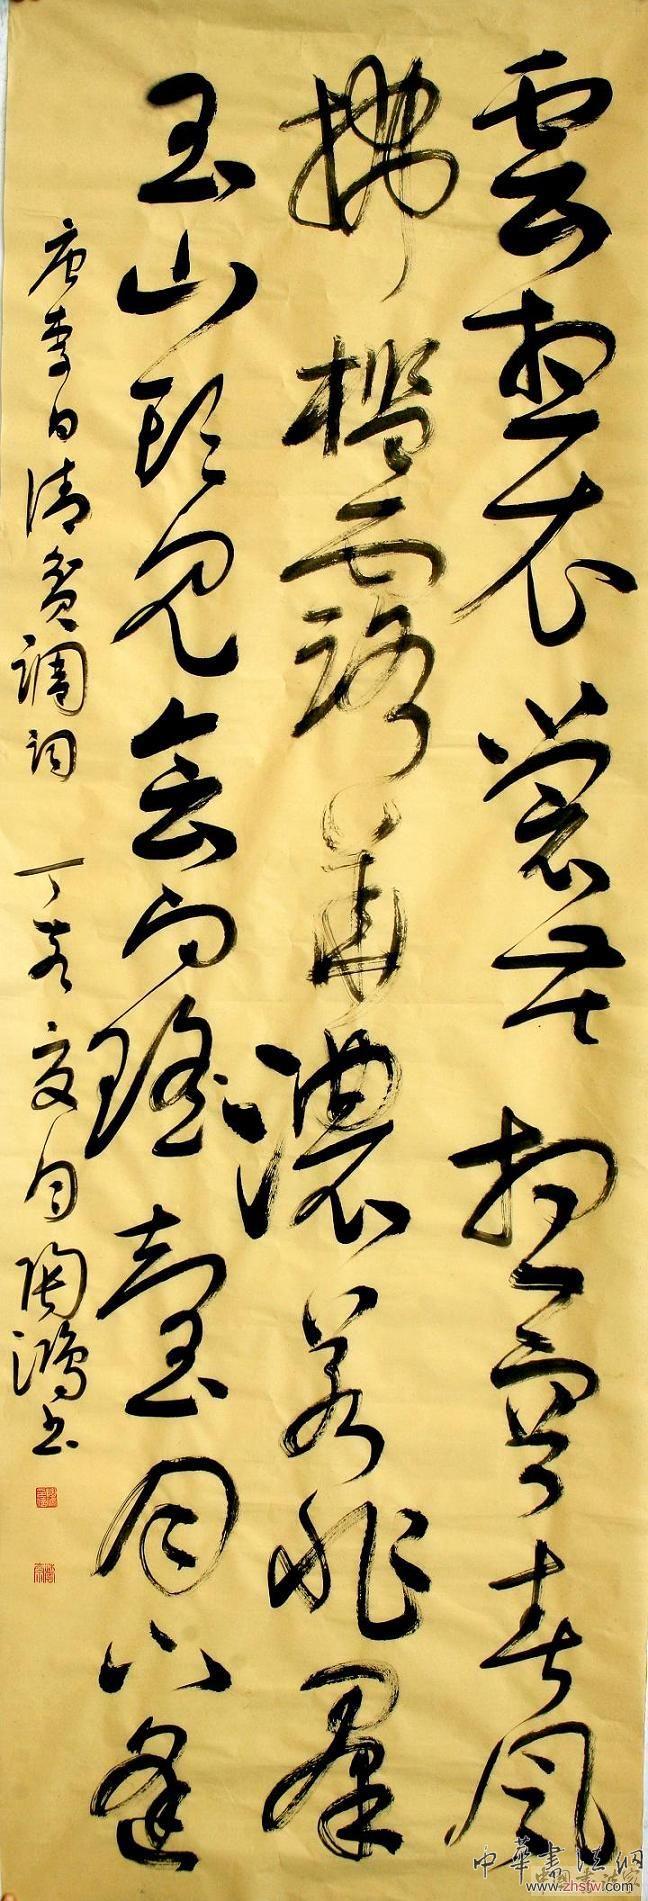 雲想衣裳花想容春風
拂檻露華濃若非羣
玉山頭見會向瑤臺月下逢
唐李白清貧調詞 丁亥夏月陶鴻书
中華書法網
www.zhsfw.com